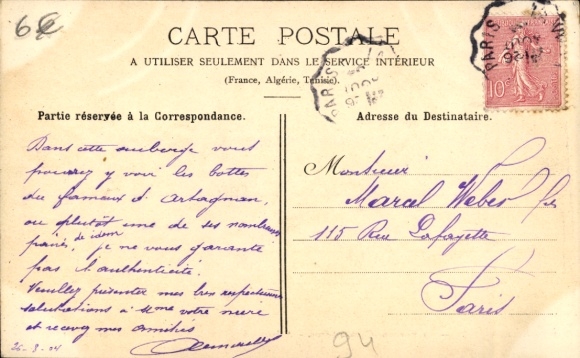 6€
CARTE POSTALE
A UTILISER SEULEMENT DANS LE SERVICE INTÉRIEUR
(France, Algérie, Tunisie).
PARIS
AOUT
10c
Partie réservée à la Correspondance.
Dans cette auberge vous
pourrez y voir les bottes
du fameux d'Artagnan,
ou plutôt une de ses nombreuses
paires de idem, je ne vous garantie
pas l'authenticité.
Veuillez présenter mes très respectueuses
salutations à Mme votre mère
et recevez mes amitiés
26-8-04
Adresse du Destinataire.
Monsieur
Marcel Weber fils
115 Rue Lafayette
Paris
94